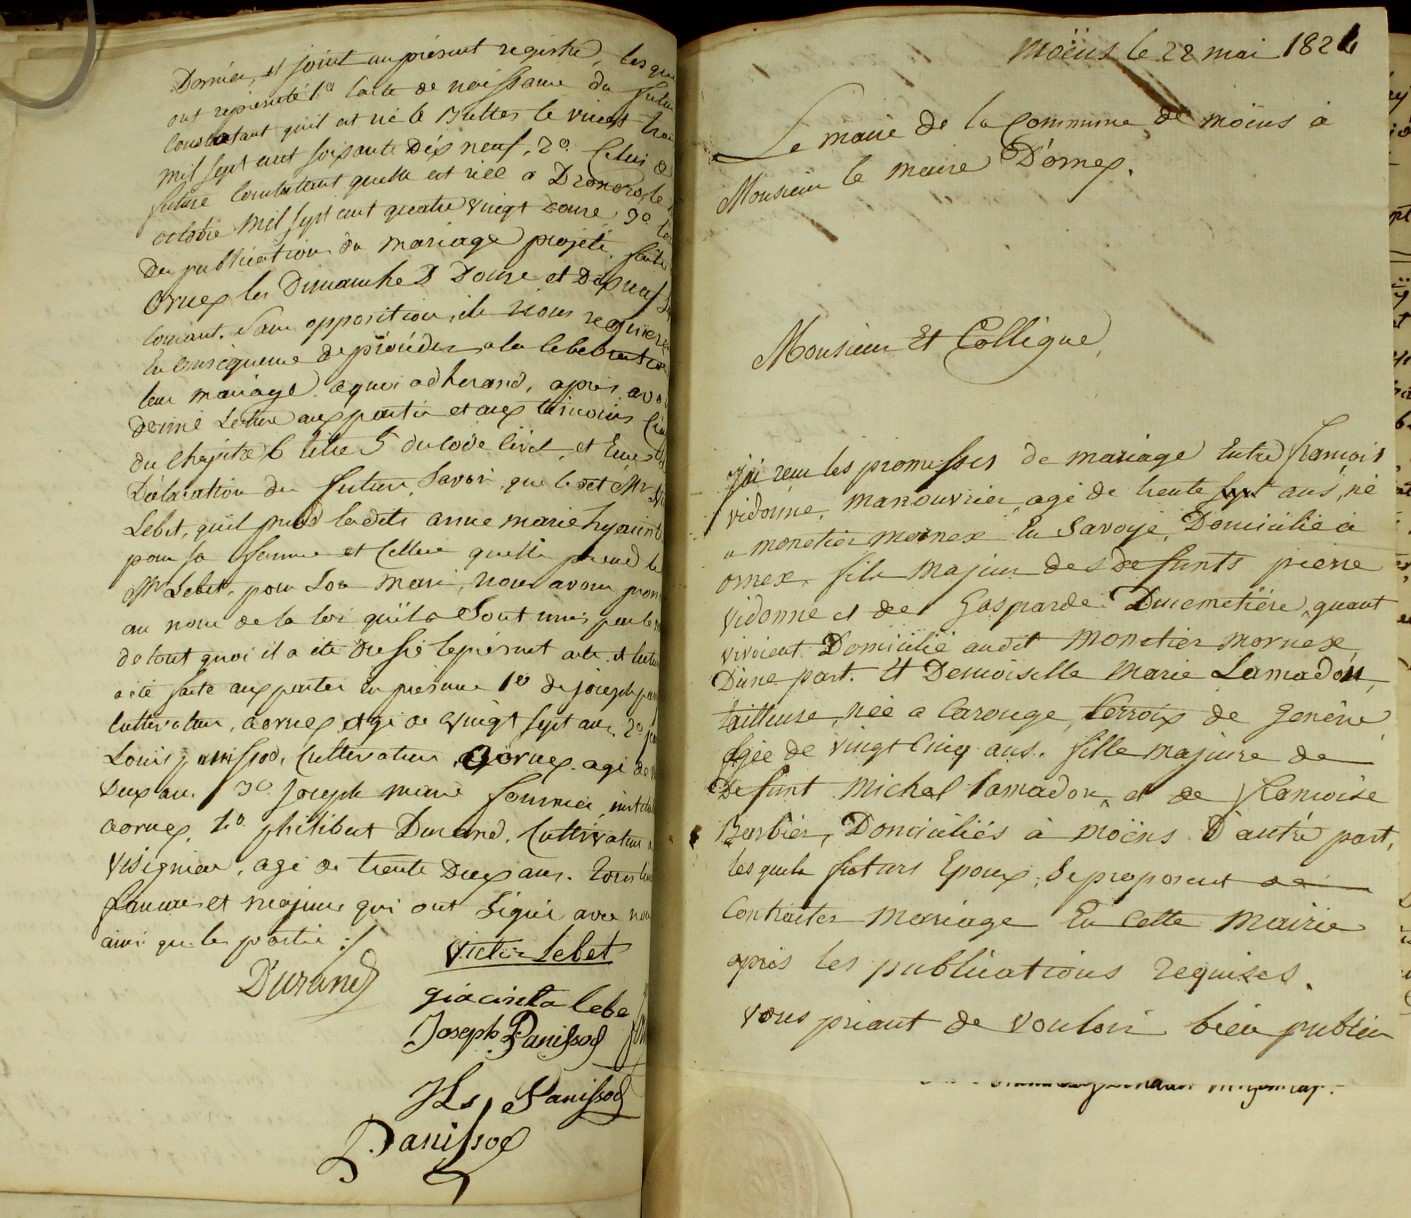 Dernier, et joint au présent registre, les
ont représenté 1º lacte de naissance du futur
Constatant quil est né le Buttes le vingt trois
mil sept cent soixante Dix neuf, 2º Celui de
future Constatant quelle est née a Dronero, le
octobre mil sept cent quatre vingt douze, 3º
Des publications du mariage projeté, faites
ornex les Dimanches Douze et Dixneuf
Courant, Sans opposition, ils Nous requiere
En Consequence de proceder a la Celebration
leur mariage. aquoi adherand, après avoir
donné Lecture aux parties et aux temoins
du Chapitre 6 titre 5 du Code Civil, et Eue
Déclaration des futurs, Savoir, que ledit Mr
Lebet, quil prend ladite anne marie hyacint
pour sa femme et Celleci quelle prend le
Mr Lebet, pour Son Mari, nous avons pron
au nom de la loi quils Sont unis par le
de tout quoi il a été Dressé le présent acte, et lecture
a été faite aux parties En présence 1º de joseph
Cultivateur, aornex, agé de Vingt Sept ans, 2º
Louis panissod, Cultivateur aornex. agé de
Deux ans. 3º. Joseph marie fournier, inst
aornex, 4º philibert Durand, Cultivateur
Visignier, agé de trente Deux ans. Tous
francais et majeurs qui ont Signé avec nous
ainsi que les parties ./.
Durand
Victor Lebet
giacinta lebe
Joseph Panissod
JLs Panissod
Panissod
Moëns le 28 mai 1824
Le maire de la Commune de moëns à
Monsieur le maire D'ornex.
Monsieur Et Collègue,
j'ai reçu les promesses de mariage Entre françois
vidonne, manouvrier, agé de trente sept ans, né
a monetier mornex En Savoye, Domicilié à
ornex, fils majeur des defunts pierre
vidonne et de Gasparde Ducemetière, quant
vivoient Domicilié audit monetier mornex
D'une part. Et Demoiselle Marie Lamadon,
tailleuse, née a Carouge, terroix de genève
agée de vingt Cinq ans. fille majeure de
Defunt Michel lamadon, et de françoise
Barbier, Domiciliés à moëns D'autre part,
lesquels futurs Epoux, Se proposent de
Contracter mariage En Cette Mairie
après les publications requises.
Vous priant de vouloir bien publier